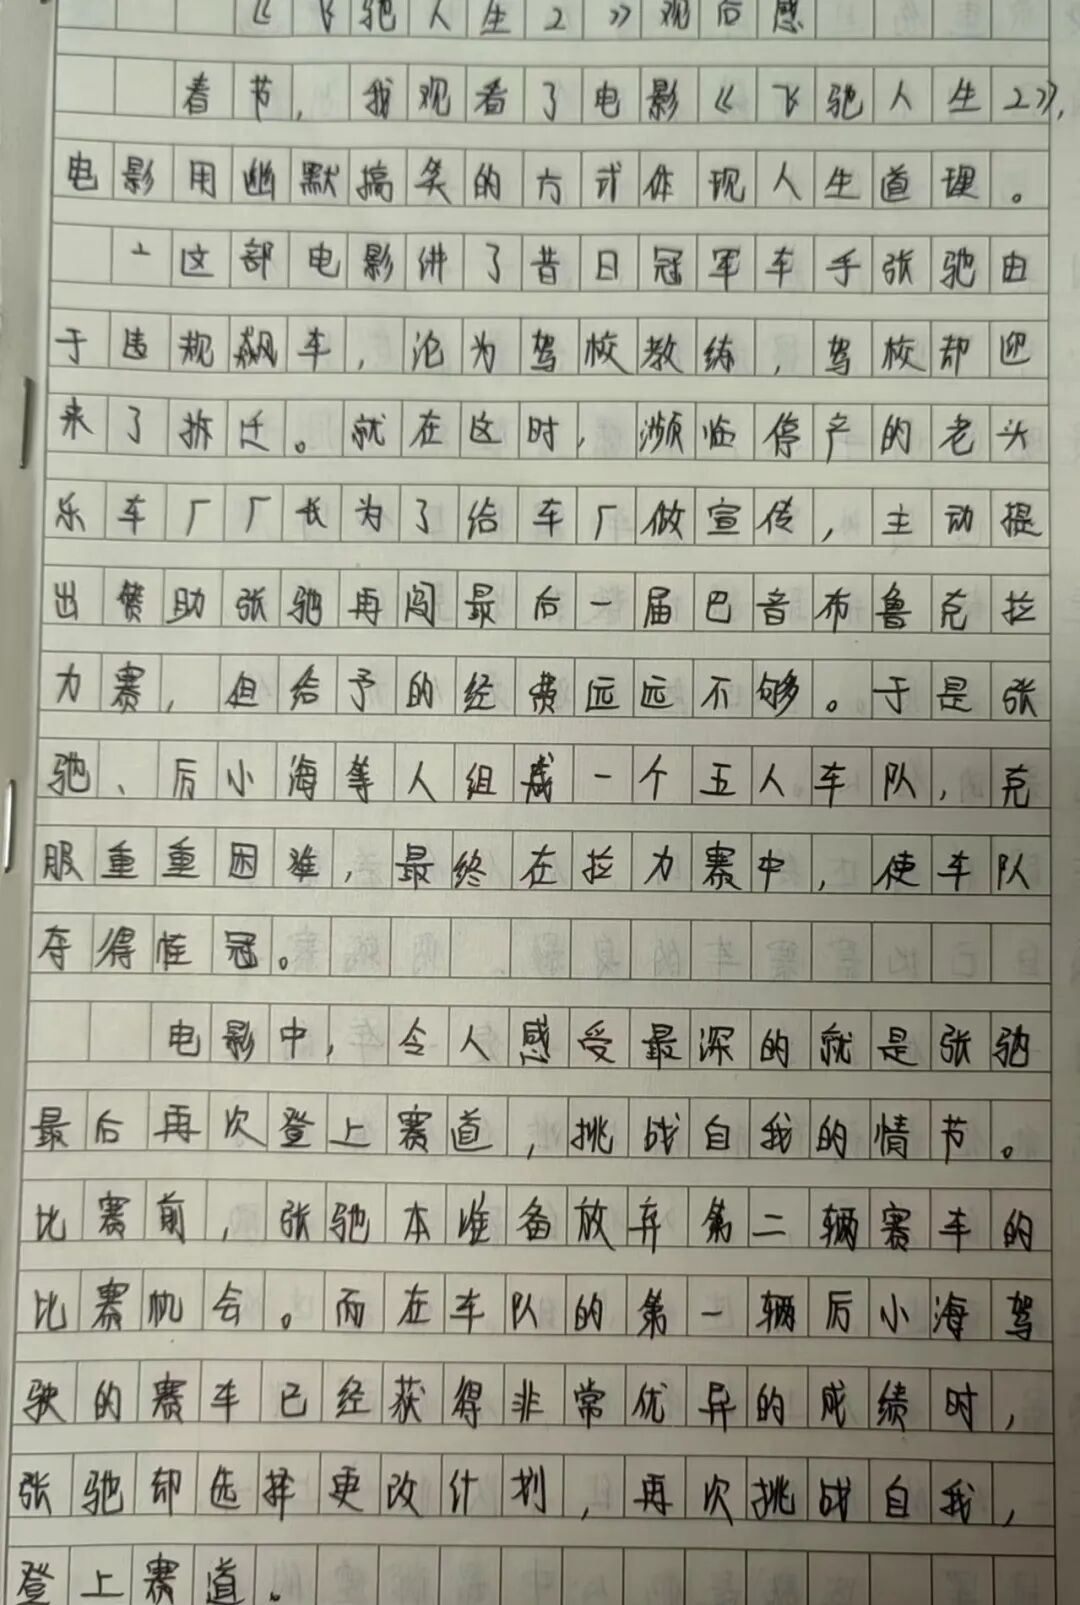 《飞驰人生2》观后感
春节，我观看了电影《飞驰人生2》，
电影用幽默搞笑的方式体现人生道理。
这部电影讲了昔日冠军车手张驰由
于违规飙车，沦为驾校教练，驾校却迎
来了拆迁。就在这时，濒临停产的老头
乐车厂厂长为了给车厂做宣传，主动提
出赞助张驰再闯最后一届巴音布鲁克拉
力赛，但给予的经费远远不够。于是张
驰、后小海等人组成一个五人车队，克
服重重困难，最终在拉力赛中，使车队
夺得惟冠。
电影中，令人感受最深的就是张驰
最后再次登上赛道，挑战自我的情节。
比赛前，张驰本准备放弃第二辆赛车的
比赛机会。而在车队的第一辆后小海驾
驶的赛车已经获得非常优异的成绩时，
张驰却选择更改计划，再次挑战自我，
登上赛道。